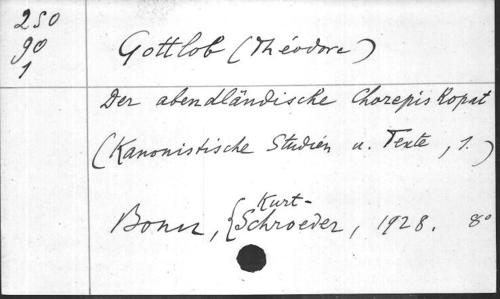 250
90
1
Gottlob (Théodore)
Der abendländische Chorepiskopat
(Kanonistische Studien u. Texte, 1.)
Bonn, {Kurt-
Schroeder, 1928. 8°